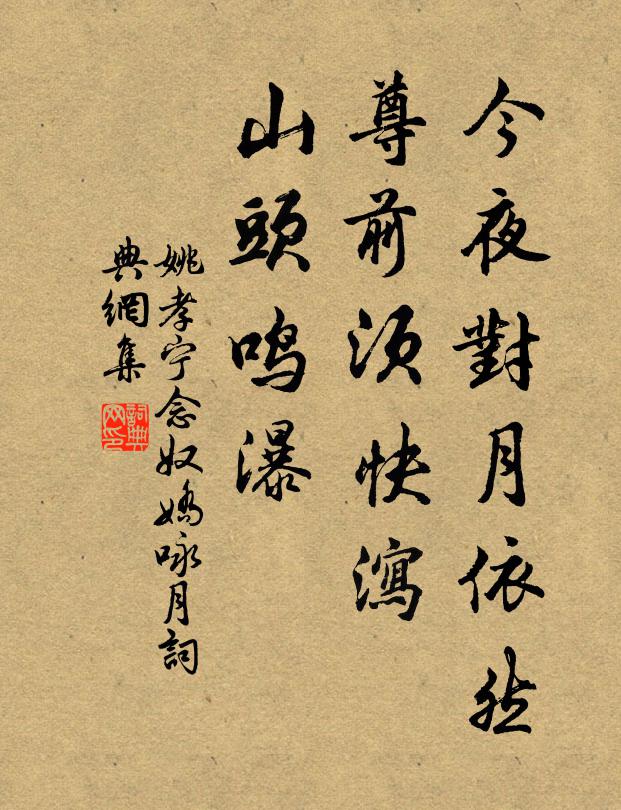 今夜對月依然
尊前須快瀉
山頭鳴瀑
姚孝宁念奴嬌咏月詞
典網集
詞典网印